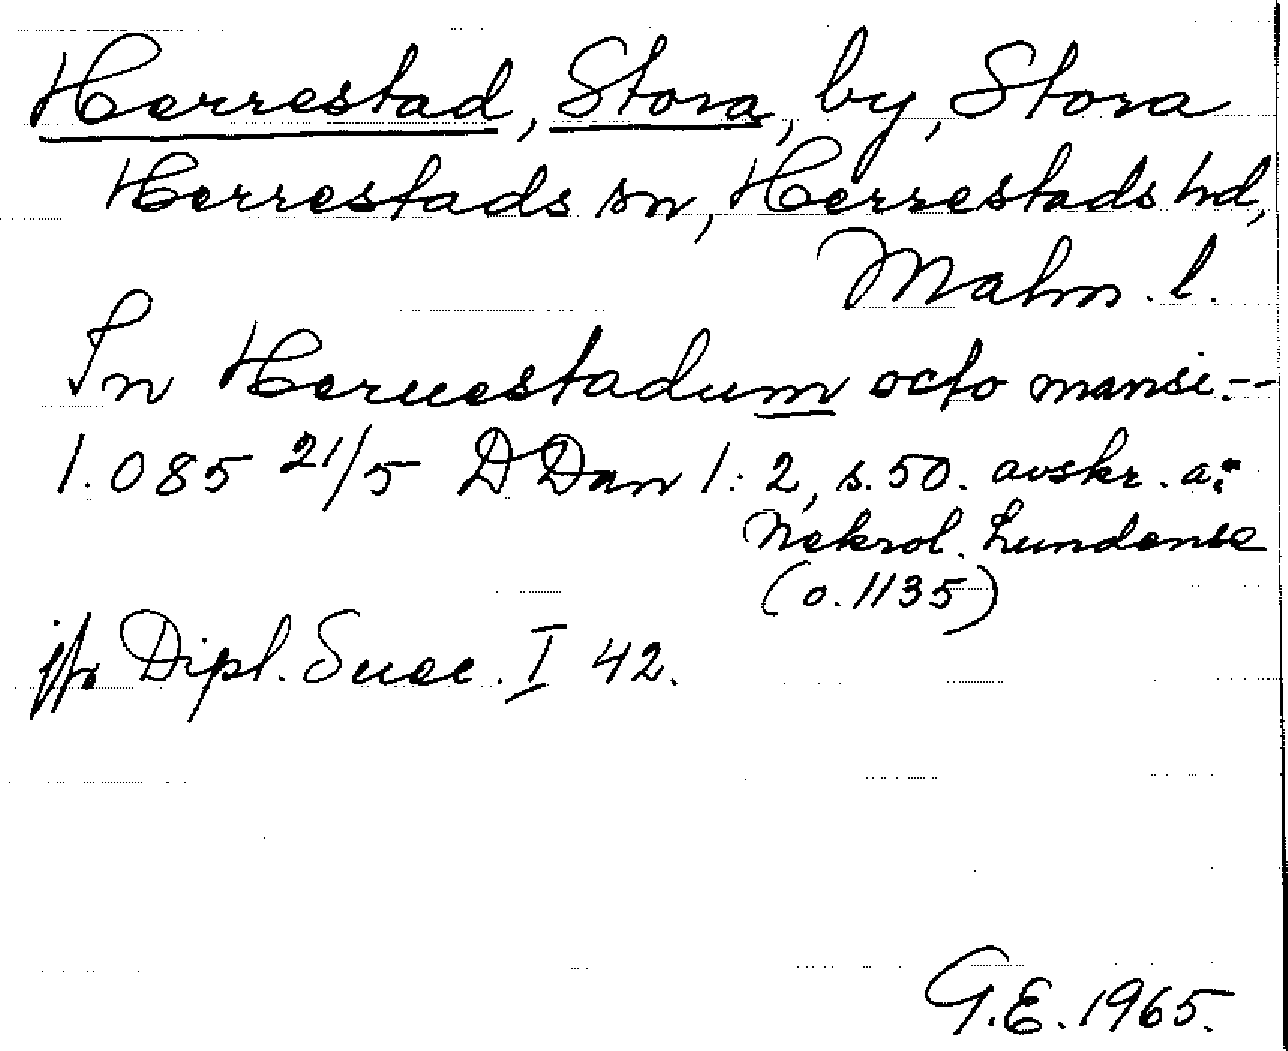 Herrestad, Stora, by, Stora
Herrestads sn, Herrestads hd,
Malm. l.
In Heruestadum octo mansi.--
1.085 21/5 DDan 1:2, s.50. avskr. a:
Nekrol. Lundense
(o.1135)
jfr Dipl. Suec. I 42.
G.E. 1965.